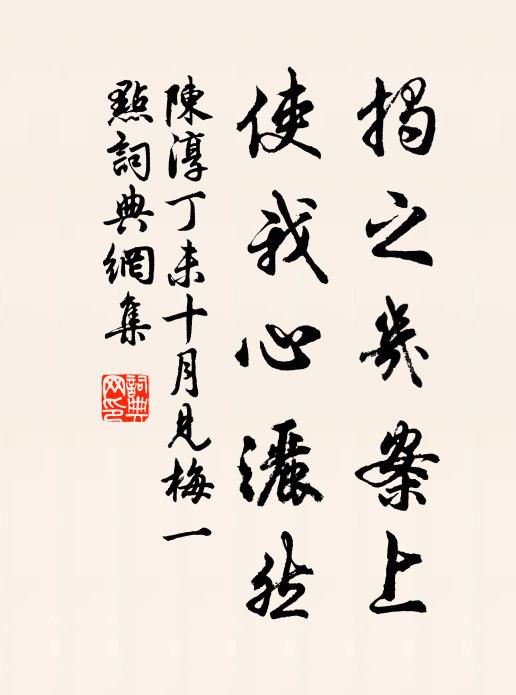 揭之幾案上
使我心灑然
陳淳丁未十月見梅一
點詞典網集
詞典
网印